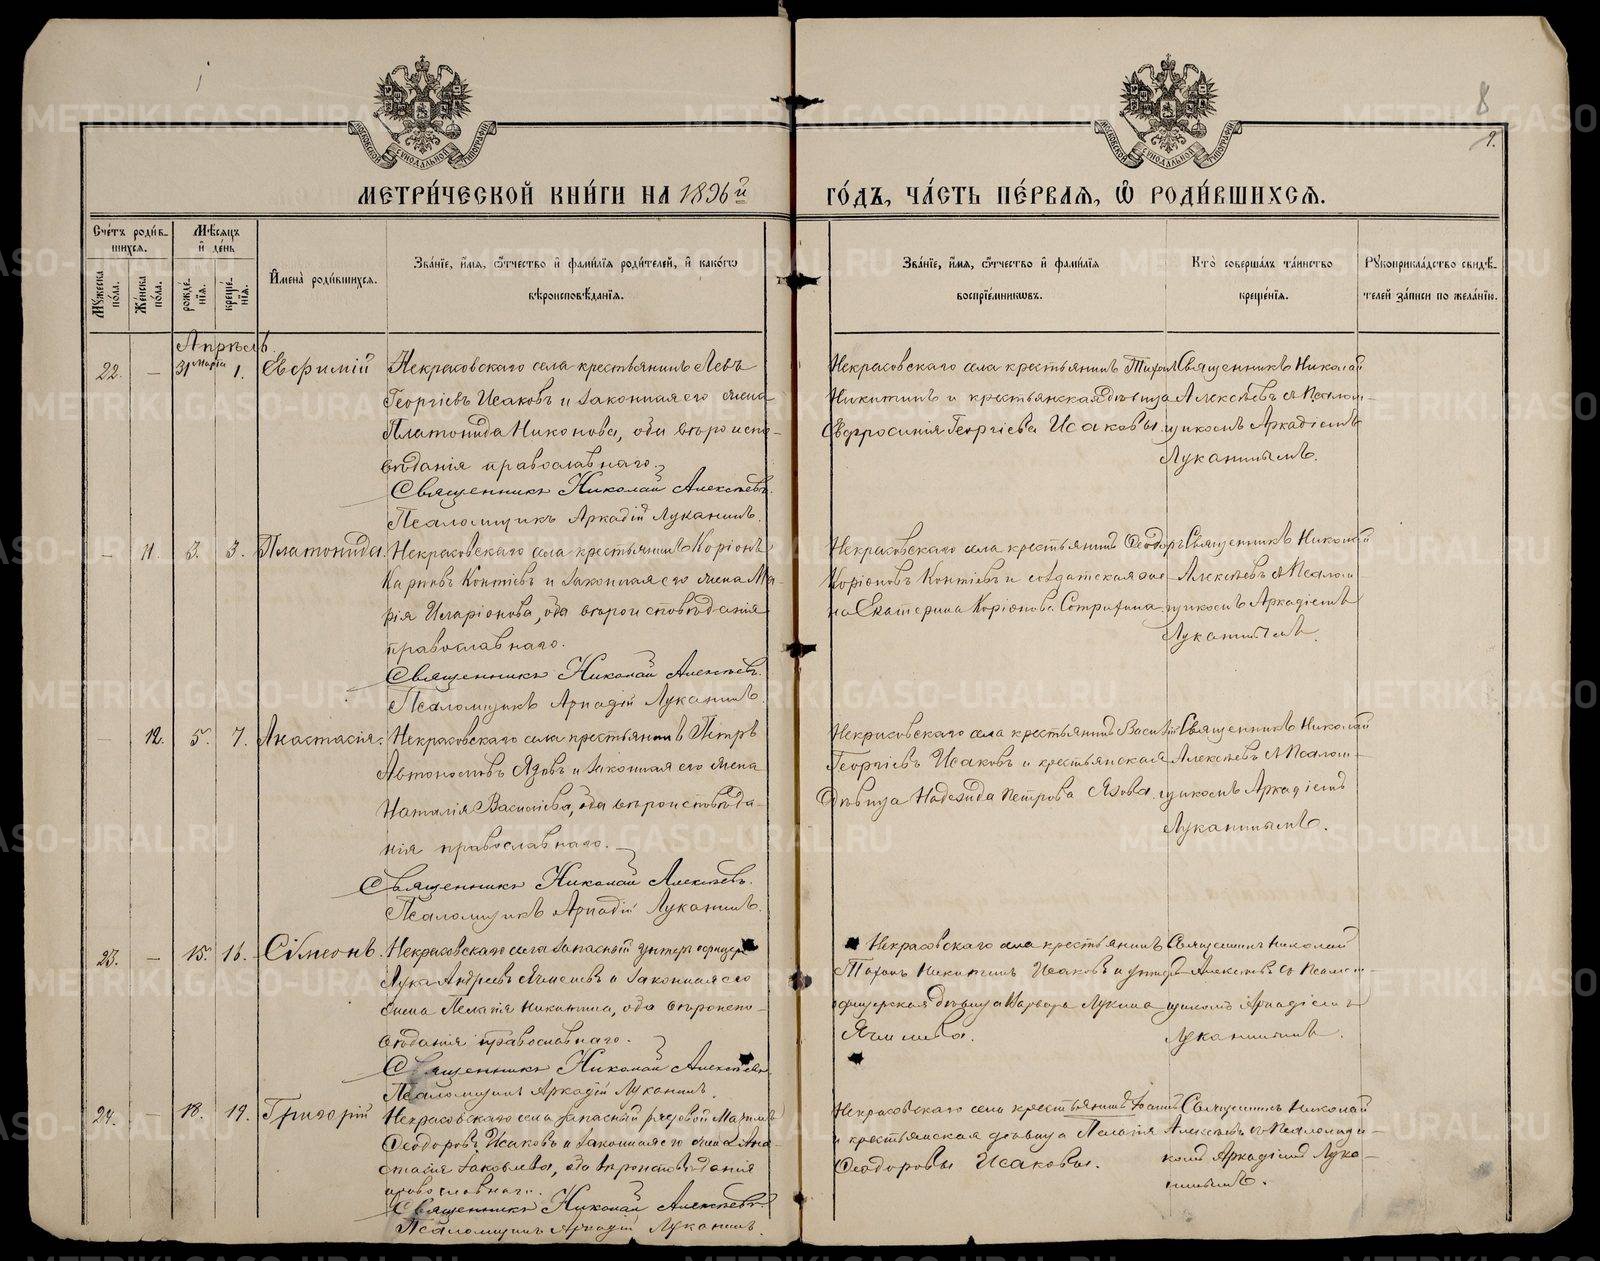 8
9.
МОСКОВСКОЙ СѴНОДАЛЬНОЙ ТИПОГРАФІИ
МОСКОВСКОЙ СѴНОДАЛЬНОЙ ТИПОГРАФІИ
МЕТРИ́ЧЕСКОЙ КНИ́ГИ НА 1896й
ГО́ДЪ, ЧА́СТЬ ПЕ́РВАЯ, Ѡ҆ РОДИ́ВШИХСЯ.
Сче́тъ роди́в-
шихся.
Мѣ́сяцъ
и҆ де́нь
Мꙋ́жеска по́ла.
Же́нска по́ла.
рожде́-
нїя.
креще́-
нїя.
И҆мена̀ роди́вшихся.
Зва́нїе, и҆́мя, ѻ҆́тчество и҆ фами́лїя роди́телей, и҆ како́гѡ
вѣроисповѣ́данїя.
Зва́нїе, и҆́мя, ѻ҆́тчество и҆ фами́лїя
воспрїе́мникѡвъ.
Кто̀ соверша́лъ та́инство
креще́нїя.
Рꙋкоприкла́дство свидѣ́-
телей за́писи по жела́нїю.
Апрѣль
22. — 31 марта 1. Евфимій
Некрасовскаго села крестьянинъ Левъ
Георгіевъ Исаковъ и законная его жена
Платонида Никонова, оба вѣроиспо-
вѣданія православнаго.
Священникъ Николай Алексѣевъ.
Псаломщикъ Аркадій Луканинъ.
Некрасовскаго села крестьянинъ Тихонъ
Никитинъ и крестьянская дѣвица
Евфросинія Георгіева Исаковы.
Священникъ Николай
Алексѣевъ съ Псалом-
щикомъ Аркадіемъ
Луканинымъ.
— 11. 3. 3. Платонида.
Некрасовскаго села крестьянинъ Коріонъ
Карповъ Коптіевъ и законная его жена Ма-
рія Иларіонова, оба вѣроисповѣданія
православнаго.
Священникъ Николай Алексѣевъ.
Псаломщикъ Аркадій Луканинъ.
Некрасовскаго села крестьянинъ Ѳеодоръ
Коріоновъ Коптіевъ и солдатская же-
на Екатерина Коріонова
Священникъ Николай
Алексѣевъ съ Псалом-
щикомъ Аркадіемъ
Луканинымъ.
— 12. 5. 7. Анастасія.
Некрасовскаго села крестьянинъ Петръ
Автономовъ Язовъ и законная его жена
Наталія Васильева, оба вѣроисповѣда-
нія православнаго.
Священникъ Николай Алексѣевъ.
Псаломщикъ Аркадій Луканинъ.
Некрасовскаго села крестьянинъ Василій
Георгіевъ Исаковъ и крестьянская
дѣвица Надежда Петрова Язова.
Священникъ Николай
Алексѣевъ съ Псалом-
щикомъ Аркадіемъ
Луканинымъ.
23. — 15. 16. Сѵмеонъ.
Некрасовскаго села запасный унтеръ офицеръ
Лука Андреевъ и законная его
жена Пелагія Никитина, оба вѣроиспо-
вѣданія православнаго.
Священникъ Николай Алексѣевъ.
Псаломщикъ Аркадій Луканинъ.
Некрасовскаго села крестьянинъ
Тихонъ Никитинъ Исаковъ и унтеръ-
офицерская дѣвица Варвара Лукина
Священникъ Николай
Алексѣевъ съ Псалом-
щикомъ Аркадіемъ
Луканинымъ.
24. — 18. 19. Григорій
Некрасовскаго села запасный рядовой
Ѳеодоровъ Исаковъ и законная его жена Ана-
стасія Яковлева, оба вѣроисповѣданія
православнаго.
Священникъ Николай Алексѣевъ.
Псаломщикъ Аркадій Луканинъ.
Некрасовскаго села крестьянинъ
и крестьянская дѣвица Пелагія
Ѳеодоровы Исаковы.
Священникъ Николай
Алексѣевъ съ Псаломщи-
комъ Аркадіемъ Лука-
нинымъ.
METRIKI.GASO-URAL.RU